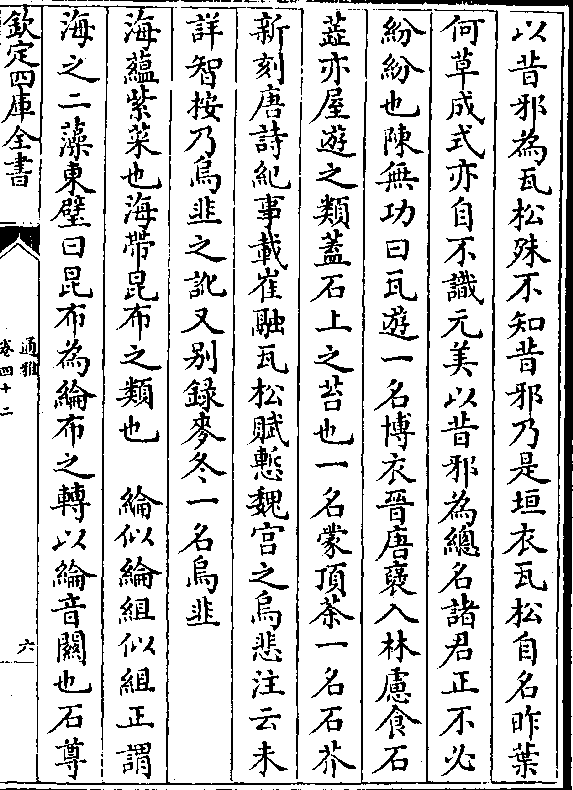 以昔邪為瓦松殊不知昔邪乃是垣衣瓦松自名昨葉
何草成式亦自不識元美以昔邪為總名諸君正不必
紛紛也陳無功曰瓦遊一名博衣晉唐襃入林慮食石
蕋亦屋遊之類蓋石上之苔也一名蒙頂茶一名石芥
新刻唐詩紀事載崔融瓦松賦慙魏宫之烏悲注云未
詳智按乃烏韭之訛又别錄麥冬一名烏韭
海蘊紫菜也海帶昆布之類也　綸似綸組似組正謂
海之二藻東璧曰昆布為綸布之轉以綸音關也石蓴
欽定四庫全書
通雅
卷四十二
六